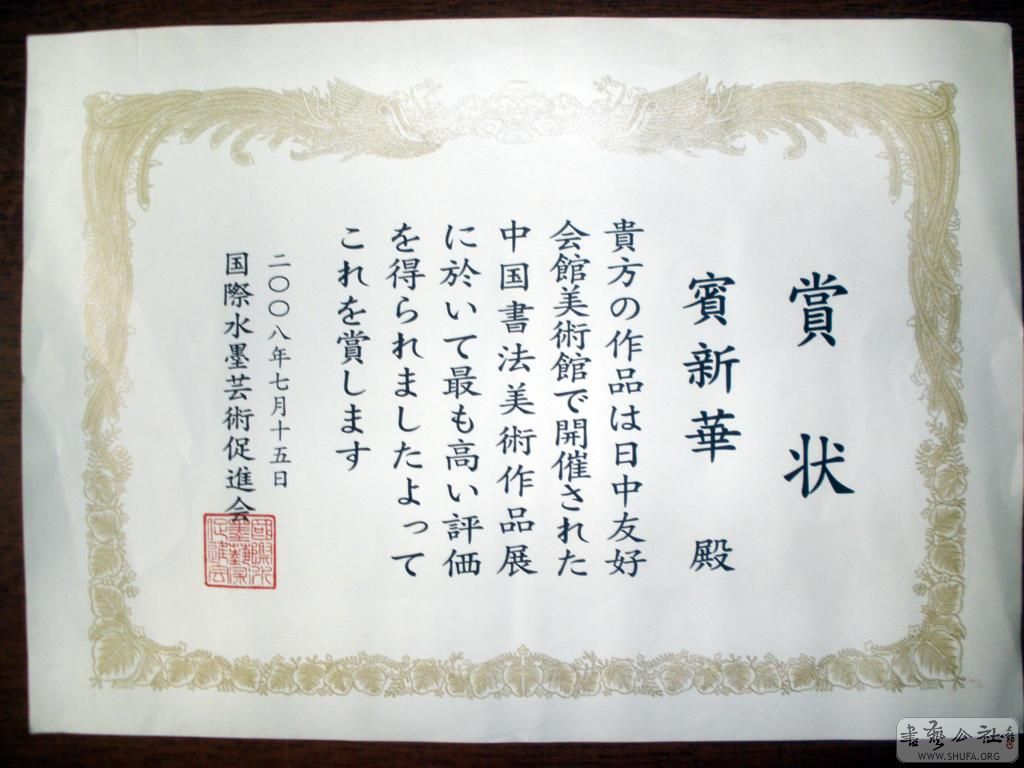 賞状
賓新華 殿
貴方の作品は日中友好
会館美術館で開催された
中国書法美術作品展
に於いて最も高い評価
を得られましたよって
これを賞します
二〇〇八年七月十五日
国際水墨芸術促進会
國際水墨藝術促進会
書藝公社
WWW.SHUFA.ORG